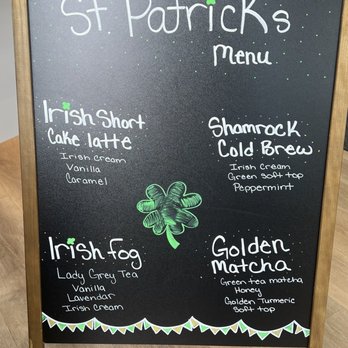 St. Patricks
Menu
Irish Short
Cake latte
Irish Cream
Vanilla
Caramel
Shamrock
Cold Brew
Irish Cream
Green Soft top
Peppermint
Irish fog
Lady Grey Tea
Vanilla
Lavendar
Irish Cream
Golden
Matcha
Green tea matcha
Honey
Golden Turmeric
Soft top